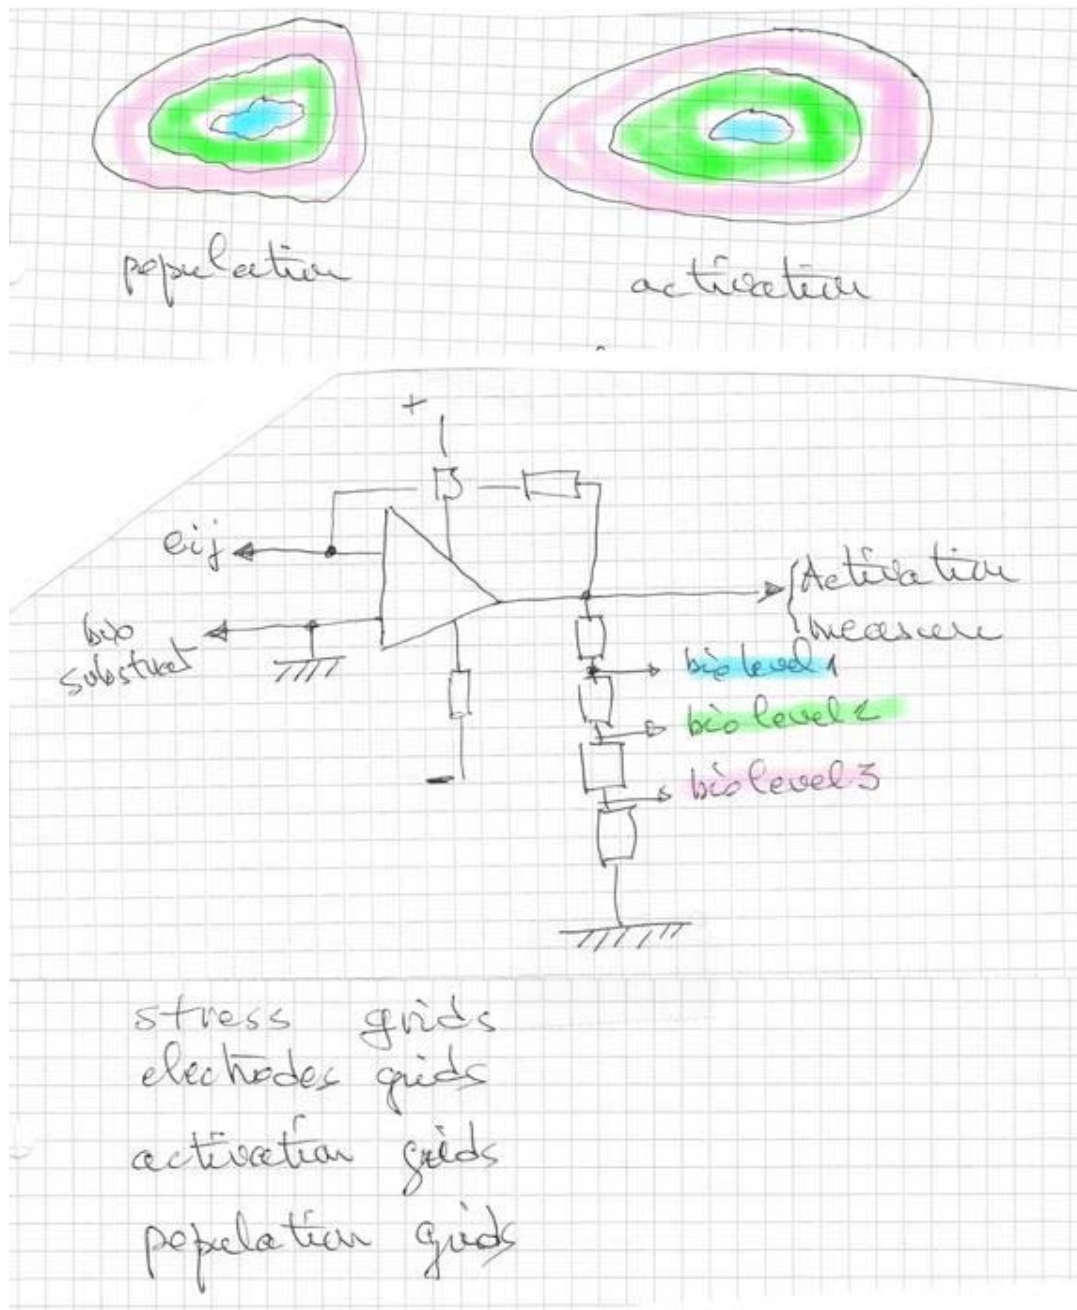 population
activation
+
eij
Activation
measure
bio
substrat
bio level 1
bio level 2
bio level 3
-
stress grids
electrodes grids
activation grids
population grids